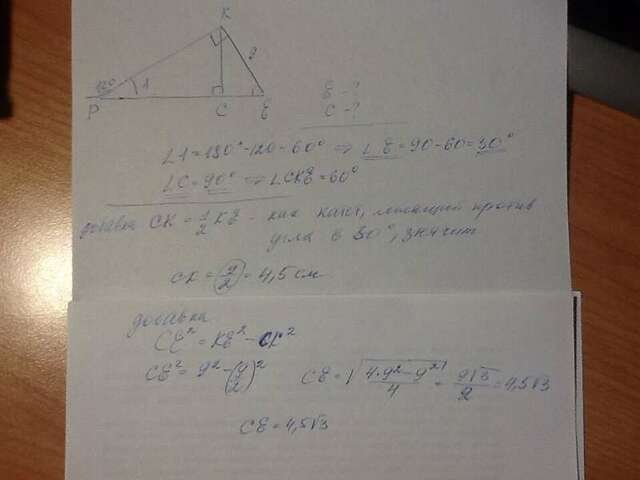 K
120°
1
9
P
C
E
E - ?
C - ?
∠1=180°-120=60° ⇒ ∠E=90-60=30°
∠C=90° ⇒ ∠CKE=60°
добавка CK=1/2 KE - как катет, лежащий против
угла в 30°, значит
CK=9/2=4,5 см
добавка
CE²=KE²-CK²
CE²=9²-(9/2)² CE=√(4·9²-9²)/4=9√3/2=4,5√3
CE=4,5√3